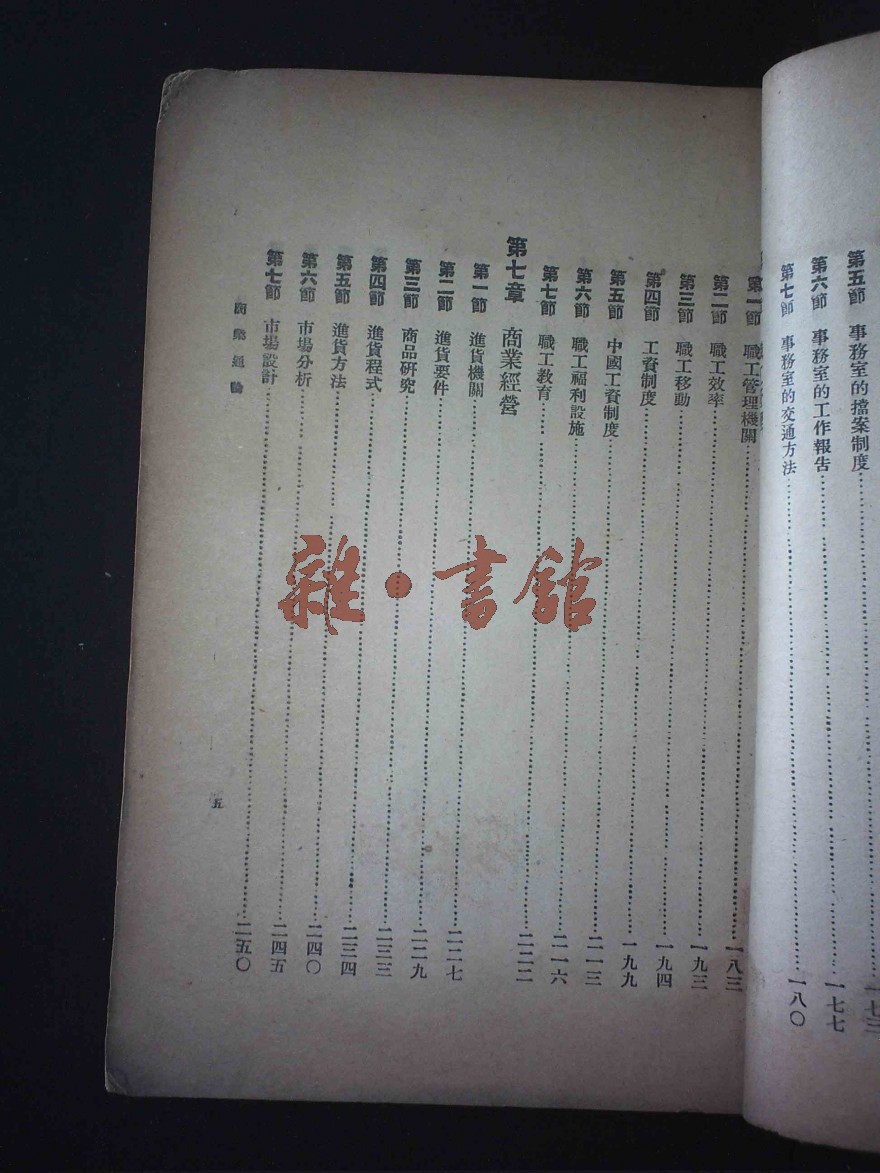 第五節 事務室的擋案制度……一七三
第六節 事務室的工作報告……一七七
第七節 事務室的交通方法……一八〇
第一節 職工管理機關……一八三
第二節 職工效率……一九三
第三節 職工移動……一九四
第四節 工資制度……一九九
第五節 中國工資制度……二一三
第六節 職工福利設施……二一六
第七節 職工教育……二二二
第七章 商業經營
第一節 進貨機關……二二七
第二節 進貨要件……二二九
第三節 商品研究……二三三
第四節 進貨程式……二三四
第五節 進貨方法……二四〇
第六節 市場分析……二四五
第七節 市場設計……二五〇
商業通論
五
雜·書館